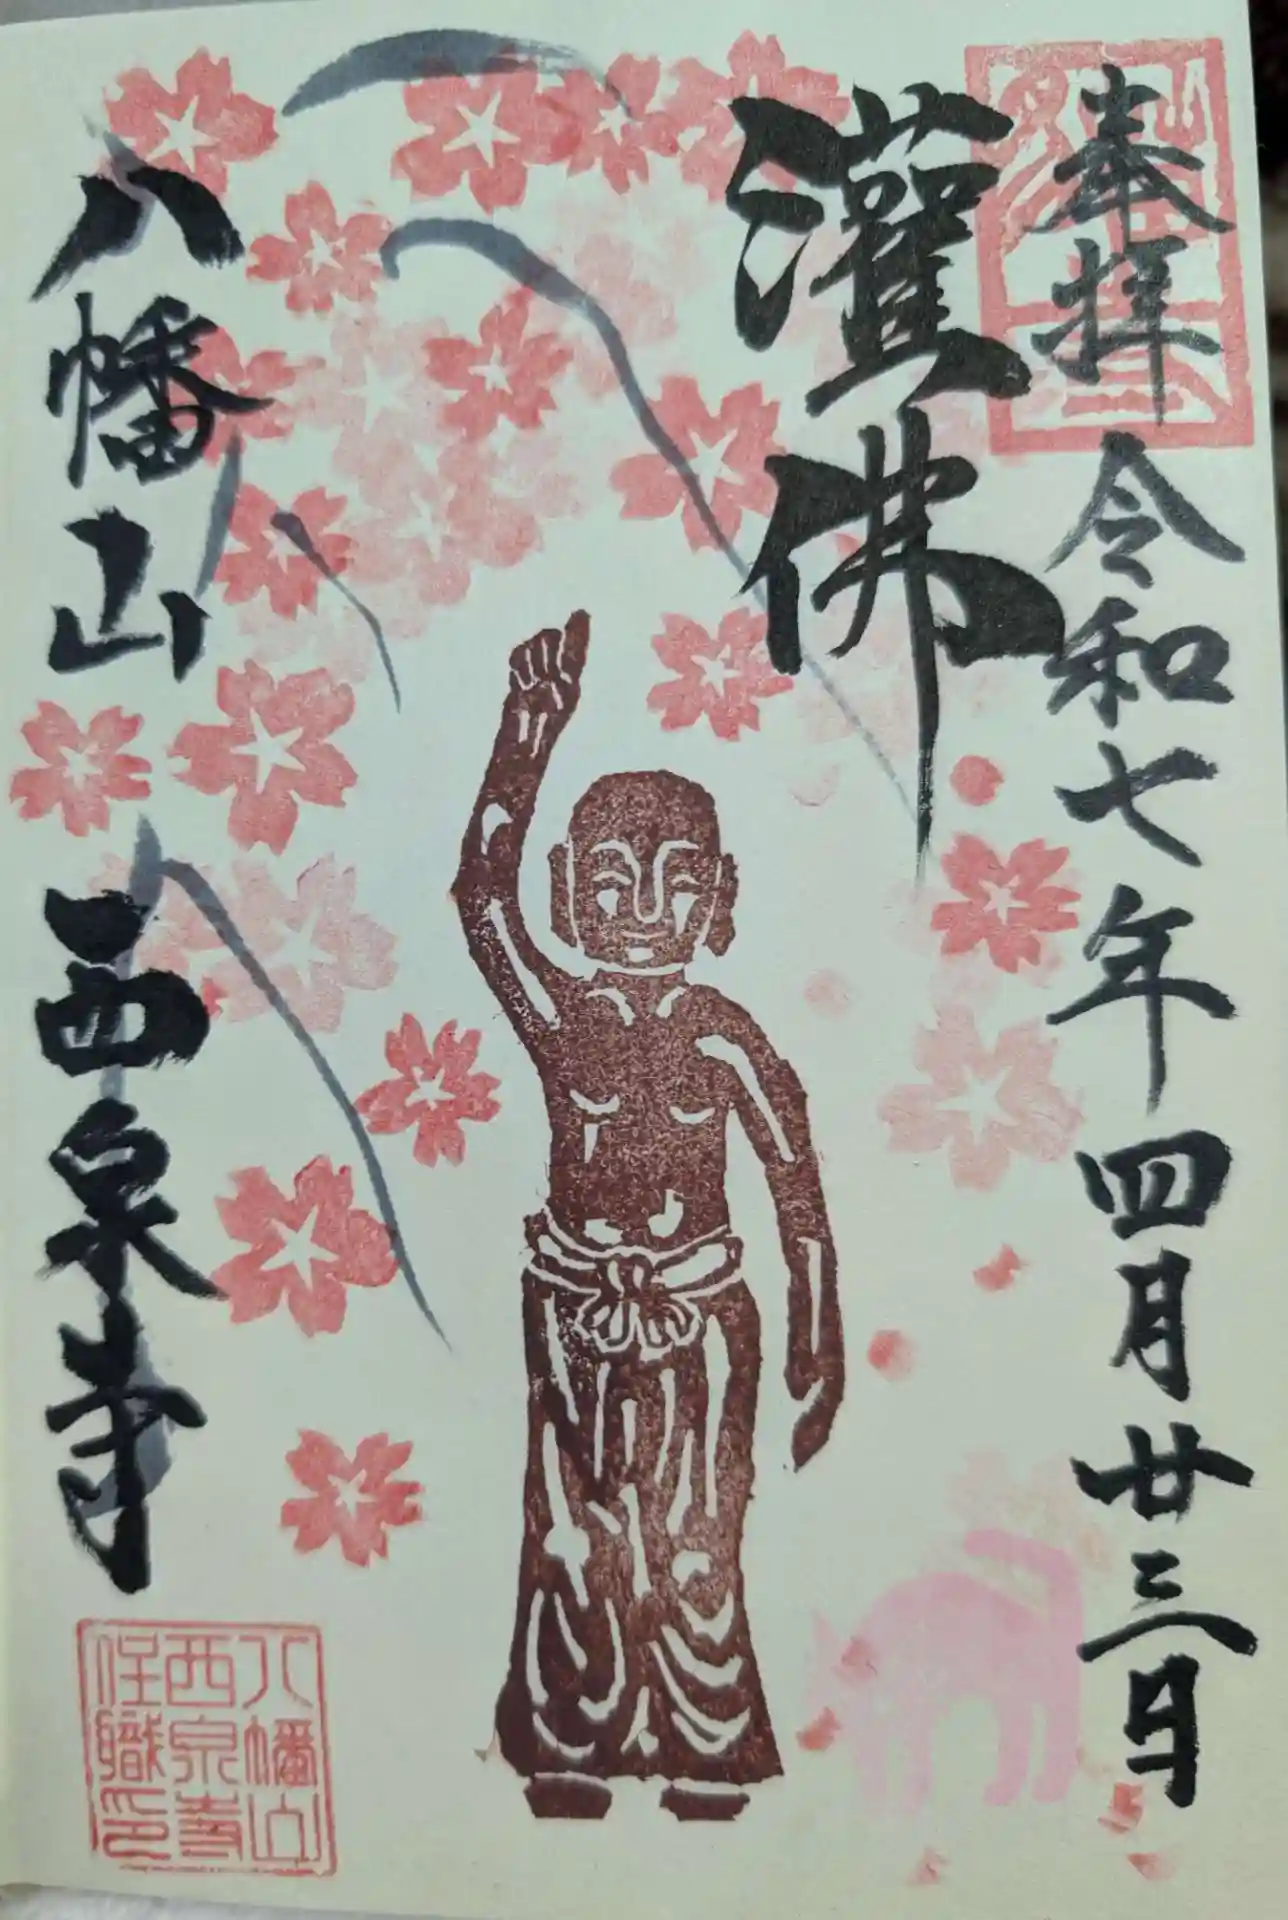 奉拝 令和七年四月廿三日
灌佛
八幡山 西泉寺
八幡山
西泉寺
住職印